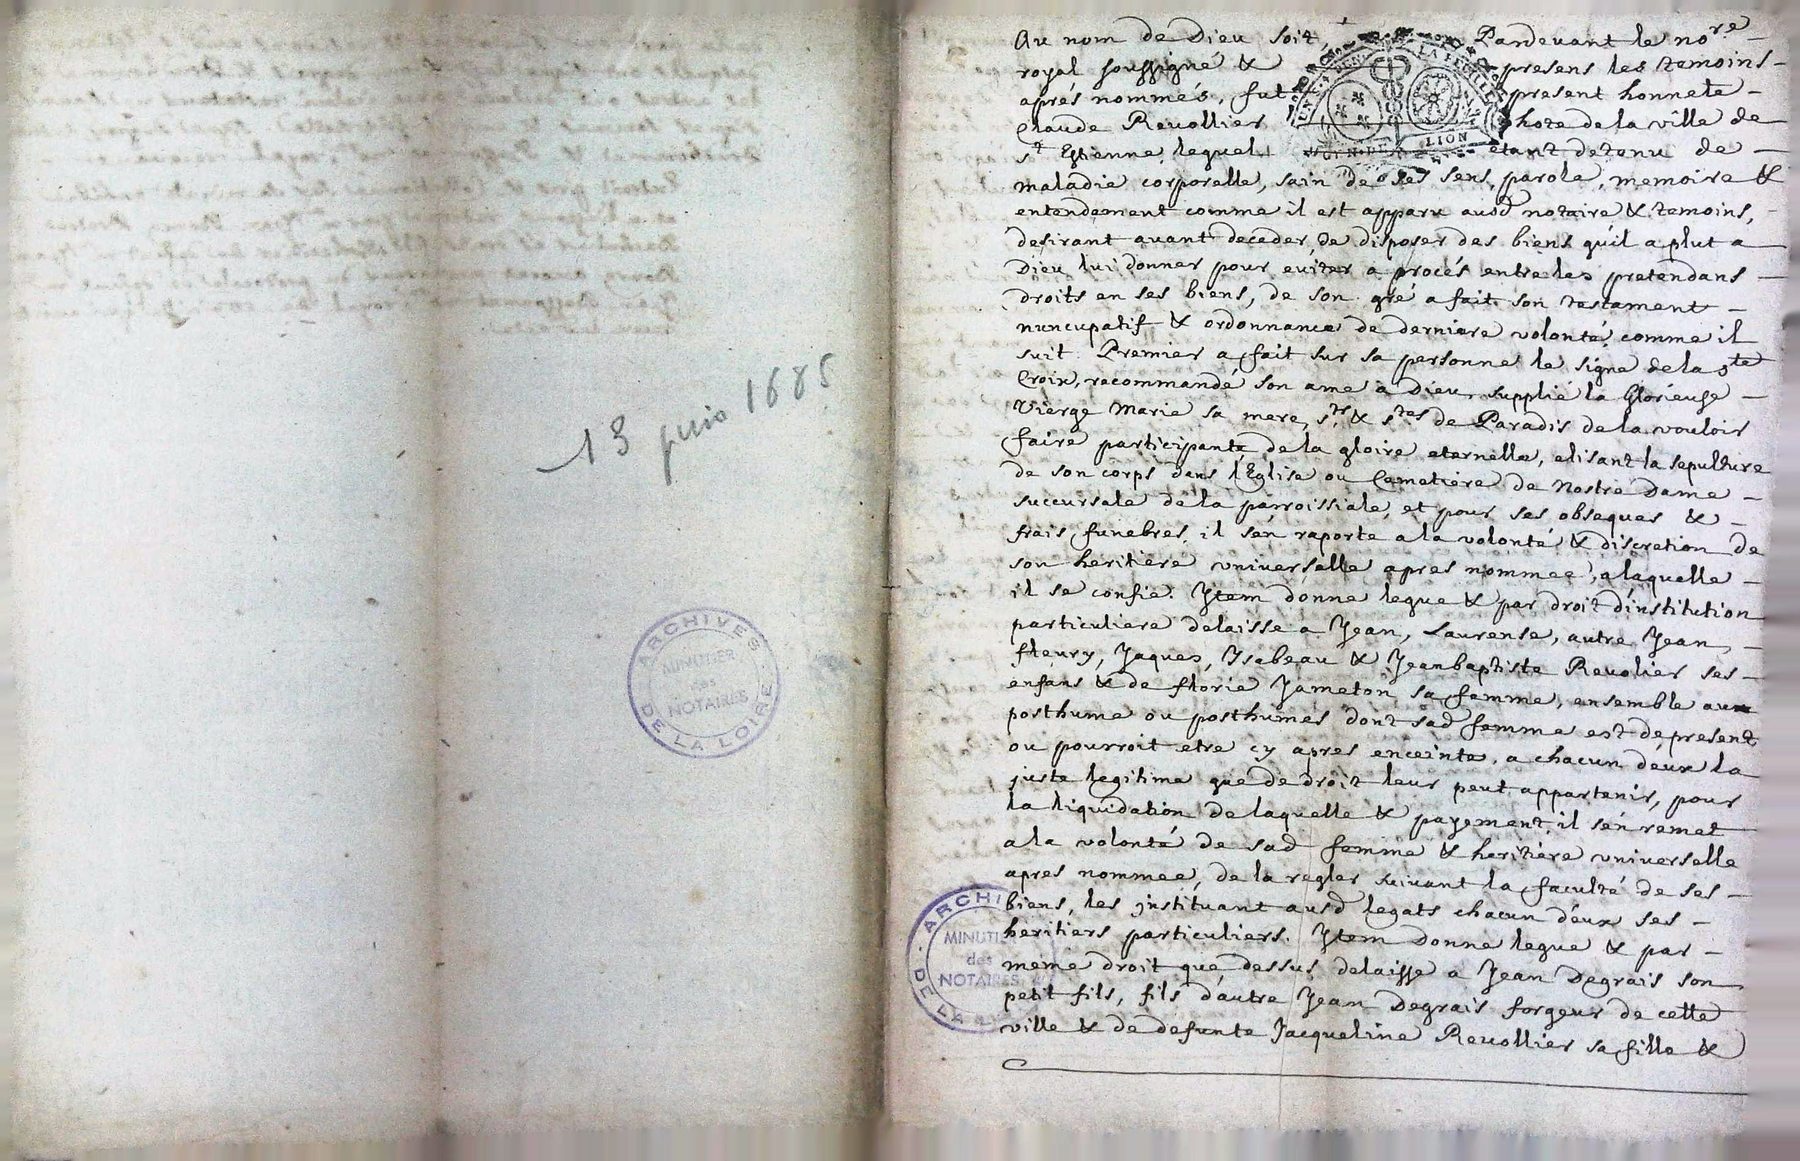 13 juin 1685
ARCHIVES DE LA LOIRE
MINUTIER
des
NOTAIRES
Au nom de Dieu soit, Pardevant le nore
royal soussigné & presens les temoins
aprés nommés, fut present honnete
Claude Revollier hote de la ville de
St Estienne lequel etant detenu de
maladie corporelle, sain de ses sens, parole, memoire &
entendement comme il est apparu ausd notaire & temoins,
desirant avant deceder, de disposer des biens qu'il a plut a
Dieu lui donner pour eviter a procés entre les pretendans
droits en ses biens, de son gré a fait son testament
nuncupatif & ordonnance de derniere volonté comme il
suit. Premier a fait sur sa personne le signe de la ste
Croix, recommandé son ame a Dieu, supplié la Glorieuse
Vierge Marie sa mere, sts & stes de Paradis de la vouloir
faire participante de la gloire eternelle, elisant la sepulture
de son corps dans l'Eglise ou Cemetiere de Nostre Dame
succursale de la parroissiale, et pour ses obseques &
frais funebres, il s'en raporte a la volonté & discretion de
son heritiere universelle apres nommee, a laquelle
il se confie. Item donne legue & par droit d'institution
particuliere delaisse a Jean, Laurense, autre Jean,
fleury, Jaques, Isabeau & Jeanbaptiste Revolier ses
enfans & de florie Jameton sa femme, ensemble aux
posthume ou posthumes dont sad femme est de present
ou pourroit etre cy apres enceinte, a chacun d'eux la
juste legitime que de droit leur peut appartenir, pour
la liquidation de laquelle & payement, il s'en remet
a la volonté de sad femme & heritiere universelle
apres nommee, de la regler suivant la faculté de ses
biens, les instituant ausd legats chacun d'eux ses
heritiers particuliers. Item donne legue & par
meme droit que dessus delaisse a Jean Degrais son
petit fils, fils d'autre Jean Degrais forgeur de cette
ville & de defunte Jacqueline Revollier sa fille &
ARCHI
MINUTIER
des
NOTAIRES
DE LA